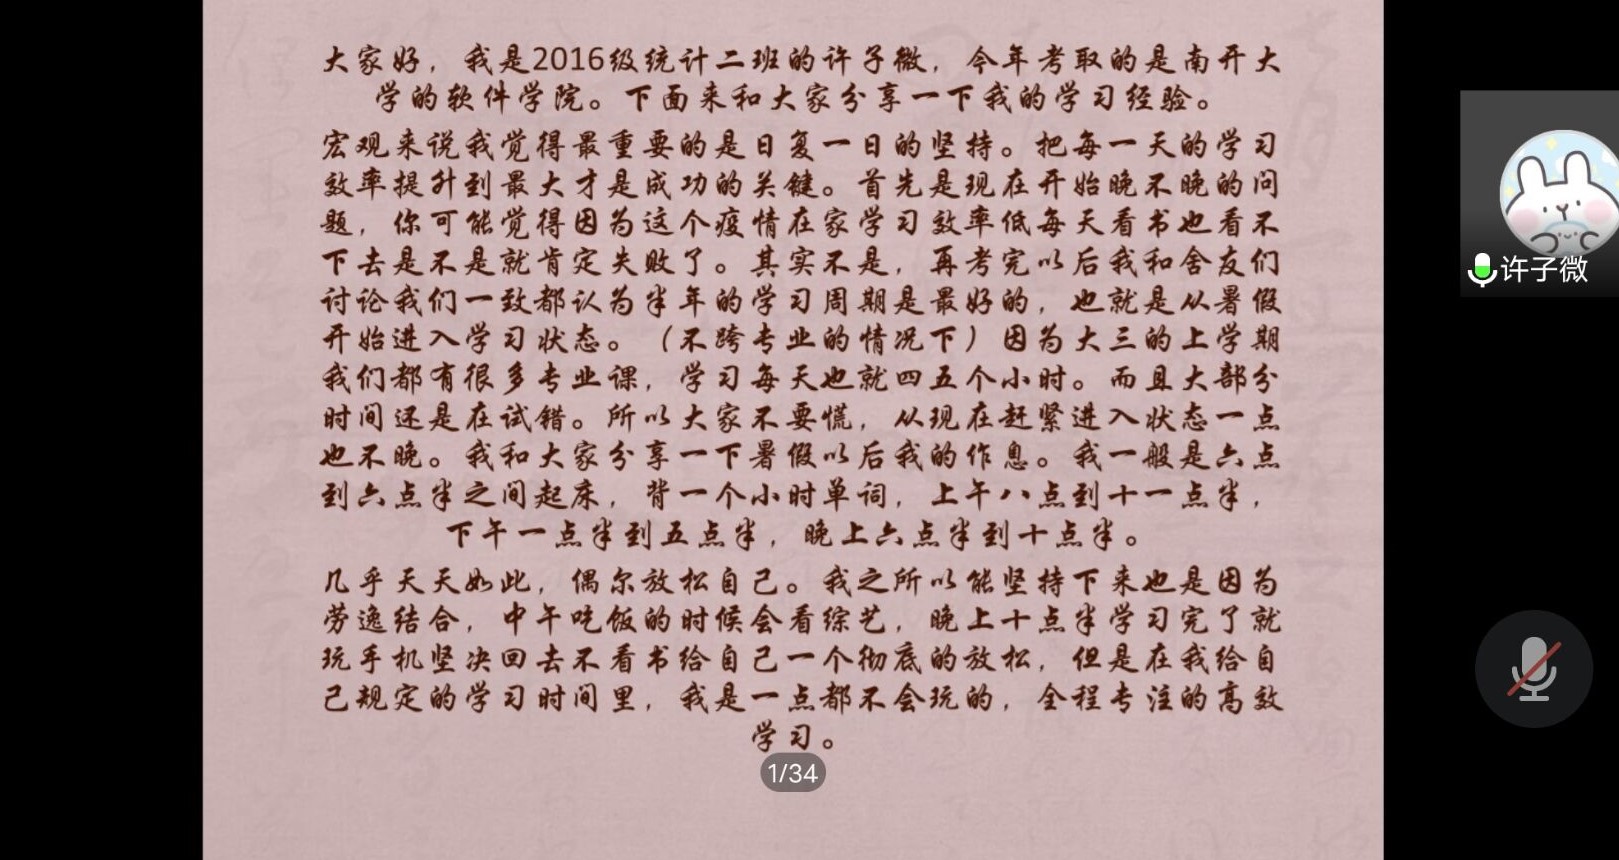 大家好，我是2016级统计二班的许子微，今年考取的是南开大
学的软件学院。下面来和大家分享一下我的学习经验。
宏观来说我觉得最重要的是日复一日的坚持。把每一天的学习
效率提升到最大才是成功的关键。首先是现在开始晚不晚的问
题，你可能觉得因为这个疫情在家学习效率低每天看书也看不
下去是不是就肯定失败了。其实不是，再考完以后我和舍友们
讨论我们一致都认为半年的学习周期是最好的，也就是从暑假
开始进入学习状态。（不跨专业的情况下）因为大三的上学期
我们都有很多专业课，学习每天也就四五个小时。而且大部分
时间还是在试错。所以大家不要慌，从现在赶紧进入状态一点
也不晚。我和大家分享一下暑假以后我的作息。我一般是六点
到六点半之间起床，背一个小时单词，上午八点到十一点半，
下午一点半到五点半，晚上六点半到十点半。
几乎天天如此，偶尔放松自己。我之所以能坚持下来也是因为
劳逸结合，中午吃饭的时候会看综艺，晚上十点半学习完了就
玩手机坚决回去不看书给自己一个彻底的放松，但是在我给自
己规定的学习时间里，我是一点都不会玩的，全程专注的高效
学习。
1/34
许子微